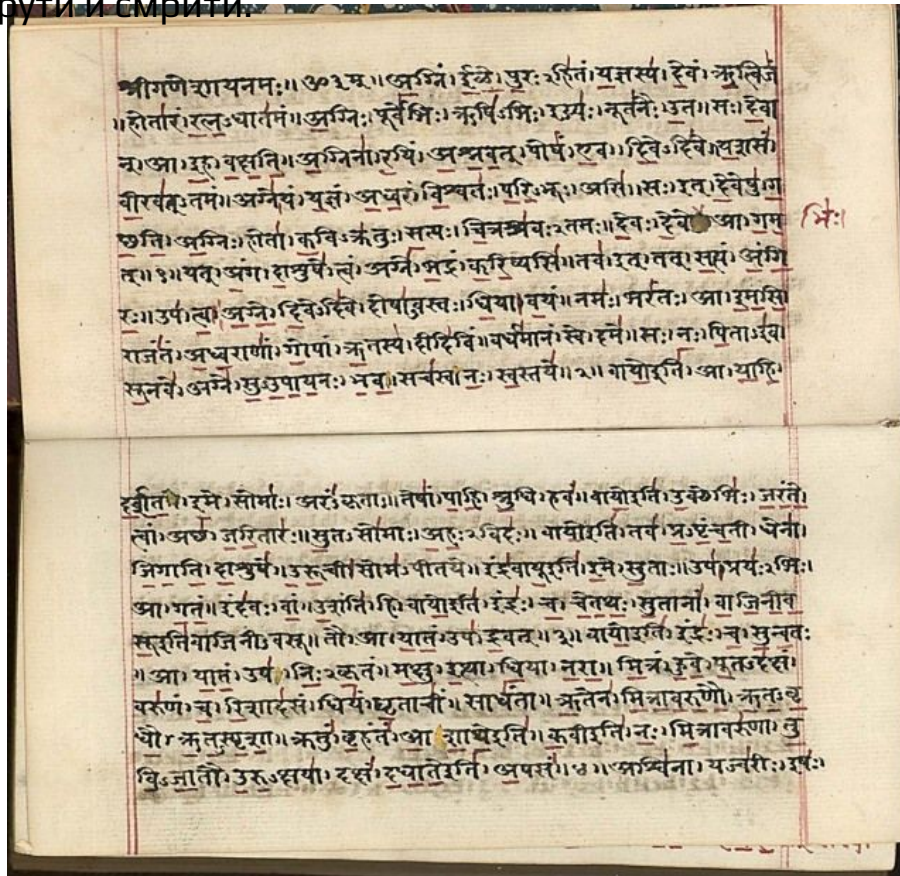 рути и смрити.
श्रीगणेशायनमः॥ ॐ३म्॥ अग्निं। ईळे। पुरःऽहितं। यज्ञस्य। देवं। ऋत्विजं
॥होतारं। रत्नऽधातमं॥ अग्निः। पूर्वेभिः। ऋषिऽभिः। ईड्यः। नूतनैः। उत॥ सः। देवा
न्। आ। इह। वक्षति॥ अग्निना। रयिं। अश्नवत्। पोषं। एव। दिवेऽदिवे॥ यशसं।
वीरवत्ऽतमं॥ अग्ने। यं। यज्ञं। अध्वरं। विश्वतः। परिऽभूः। असि॥ सः। इत्। देवेषु। ग
च्छति॥ अग्निः। होता। कविऽक्रतुः। सत्यः। चित्रश्रवःऽतमः॥ देवः। देवे आ। गम
भिः।
त्॥१॥ यत्। अंग। दाशुषे। त्वं। अग्ने। भद्रं। करिष्यसि॥ तव। इत्। तत्। सत्यं। अंगि
रः॥ उप। त्वा। अग्ने। दिवेऽदिवे। दोषाऽवस्तः। धिया। वयं॥ नमः। भरंतः। आ। इमसि॥
राजंतं। अध्वराणां। गोपां। ऋतस्य। दीदिविं॥ वर्धमानं। स्वे। दमे॥ सः। नः। पिताऽइव।
सूनवे। अग्ने। सुऽउपायनः। भव॥ सचस्व। नः। स्वस्तये॥२॥ वायोइति। आ। याहि।
दर्शत। इमे। सोमाः। अरंऽकृताः॥ तेषां। पाहि। श्रुधि। हवं॥ वायोइति। उक्थेभिः। जरंते।
त्वां। अच्छ। जरितारः॥ सुतऽसोमाः। अहःऽविदः॥ वायोइति। तव। प्रऽपृंचती। धेना।
जिगाति। दाशुषे॥ उरूची। सोमऽपीतये॥ इंद्रवायूइति। इमे। सुताः॥ उप। प्रयःऽभिः।
आ। गतं॥ इंदवः। वां। उशंति। हि। वायोइति। इंद्रः। च। चेतथः। सुतानां। वाजिनीव
सूइतिवाजिनीऽवसू॥ तौ। आ। यातं। उप। द्रवत्॥३॥ वायोइति। इंद्रः। च। सुन्वतः
॥आ। यातं। उप। निःऽकृतं॥ मक्षु। इत्था। धिया। नरा॥ मित्रं। हुवे। पूतऽदक्षं।
वरुणं। च। रिशादसं। धियं। घृताचीं। साधंता॥ ऋतेन। मित्रावरुणौ। ऋतऽवृ
धौ। ऋतऽस्पृशा॥ क्रतुं। बृहंतं। आ शाथेइति॥ कवीइति। नः। मित्रावरुणा। तु
विऽजातौ। उरुऽक्षया। दक्षं। दधातेइति। अपसं॥४॥ अश्विना। यज्वरीः। इषः।